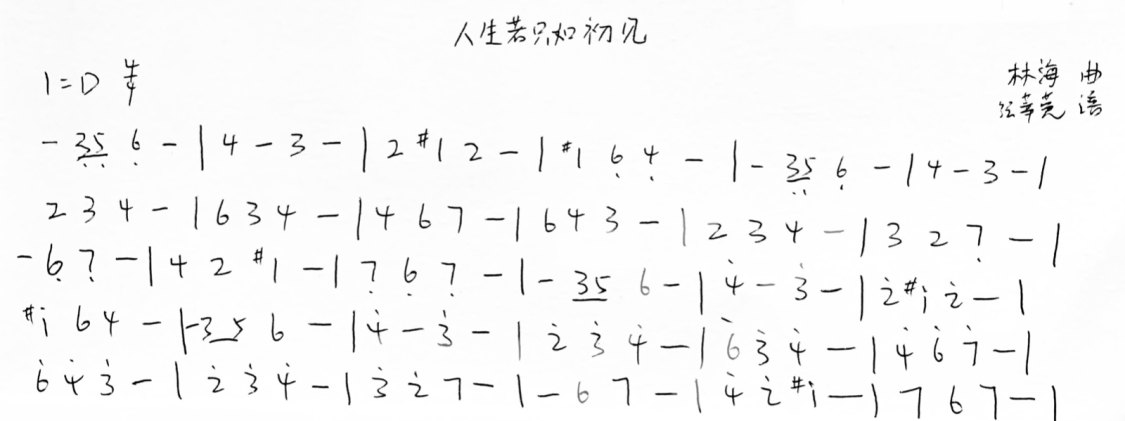 人生若只如初见
1=D 4/4
林海 曲
语
- 3̣5̣ 6̣ - | 4 - 3 - | 2 #1 2 - | #1 6̣ 4̣ - | - 3̣5̣ 6̣ - | 4 - 3 - |
2 3 4 - | 6 3 4 - | 4 6 7 - | 6 4 3 - | 2 3 4 - | 3 2 7̣ - |
- 6̣ 7̣ - | 4 2 #1 - | 7̣ 6̣ 7̣ - | - 35 6 - | 4̇ - 3̇ - | 2̇ #1̇ 2̇ - |
#1̇ 6 4 - | - 35 6 - | 4̇ - 3̇ - | 2̇ 3̇ 4̇ - | 6̇ 3̇ 4̇ - | 4̇ 6̇ 7̇ - |
6̇ 4̇ 3̇ - | 2̇ 3̇ 4̇ - | 3̇ 2̇ 7 - | - 6 7 - | 4̇ 2̇ #1̇ - | 7 6 7 - |